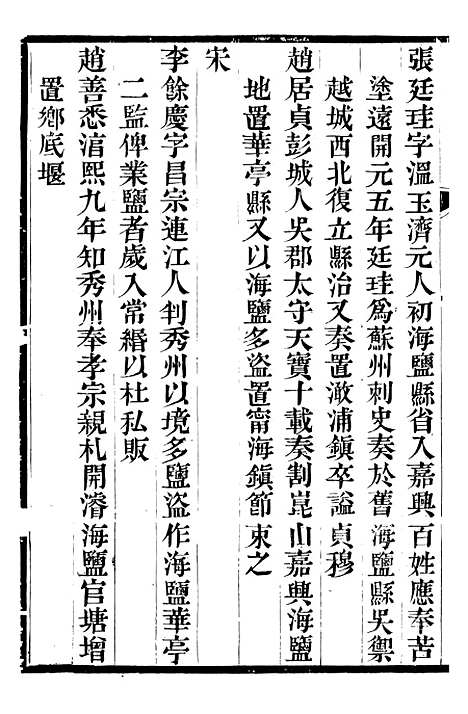 張廷珪字溫玉濟元人初海鹽縣省入嘉興百姓應奉苦
塗遠開元五年廷珪爲蘇州刺史奏於舊海鹽縣吳禦
越城西北復立縣治又奏置澉浦鎮卒謚貞穆
趙居貞彭城人吳郡太守天寶十載奏割崑山嘉興海鹽
地置華亭縣又以海鹽多盜置甯海鎮節束之
宋
李餘慶字昌宗連江人判秀州以境多鹽盜作海鹽華亭
二監俾業鹽者歲入常緡以杜私販
趙善悉淯熙九年知秀州奉孝宗親札開濬海鹽官塘增
置鄉底堰